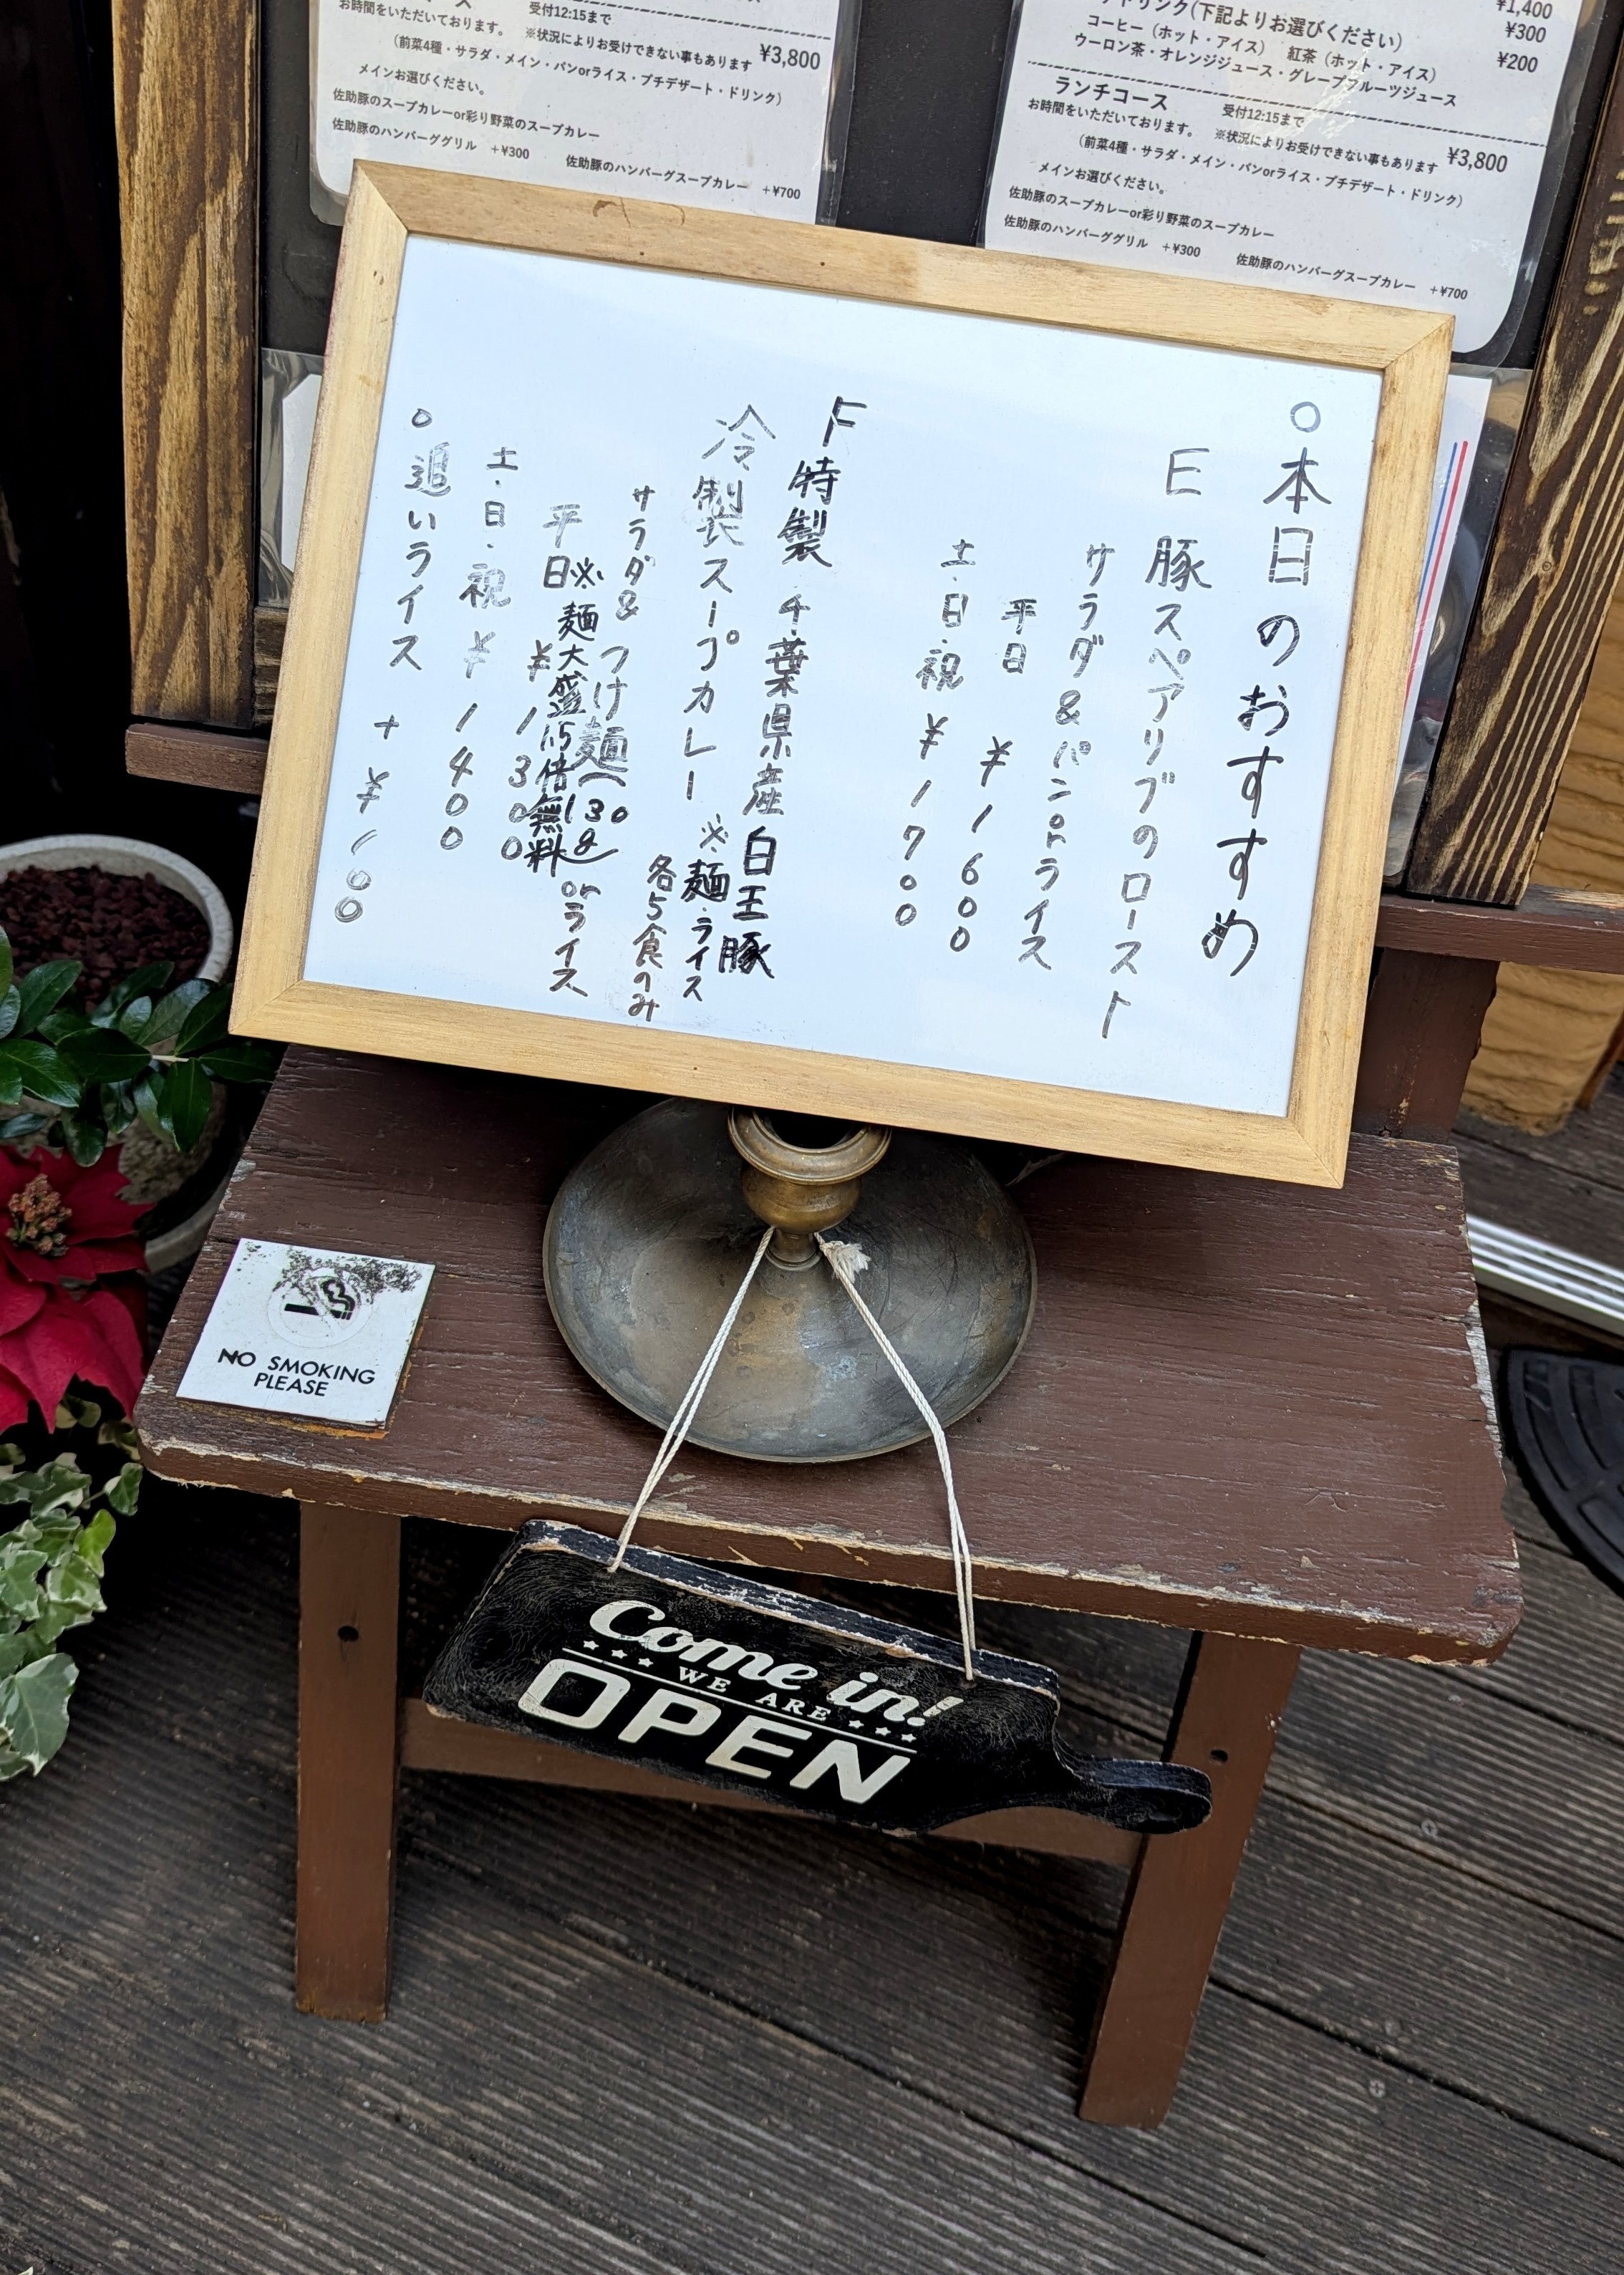 受付12:15まで
お時間をいただいております。 ※状況によりお受けできない事もあります ¥3,800
(前菜4種・サラダ・メイン・パンorライス・プチデザート・ドリンク)
メインお選びください。
佐助豚のスープカレーor彩り野菜のスープカレー
佐助豚のハンバーググリル +¥300 佐助豚のハンバーグスープカレー +¥700
¥1,400
ドリンク(下記よりお選びください) ¥300
コーヒー(ホット・アイス) 紅茶(ホット・アイス) ¥200
ウーロン茶・オレンジジュース・グレープフルーツジュース
ランチコース 受付12:15まで
お時間をいただいております。 ※状況によりお受けできない事もあります ¥3,800
(前菜4種・サラダ・メイン・パンorライス・プチデザート・ドリンク)
メインお選びください。
佐助豚のスープカレーor彩り野菜のスープカレー
佐助豚のハンバーググリル +¥300 佐助豚のハンバーグスープカレー +¥700
○本日のおすすめ
E 豚スペアリブのロースト
サラダ&パンorライス
平日 ¥1600
土・日・祝 ¥1700
F 特製 千葉県産白王豚
冷製スープカレー ※麺・ライス
各5食のみ
サラダ& つけ麺(130g) orライス
※麺大盛1.5倍無料
平日 ¥1300
土・日・祝 ¥1400
○追いライス +¥100
NO SMOKING
PLEASE
Come in!
WE ARE
OPEN